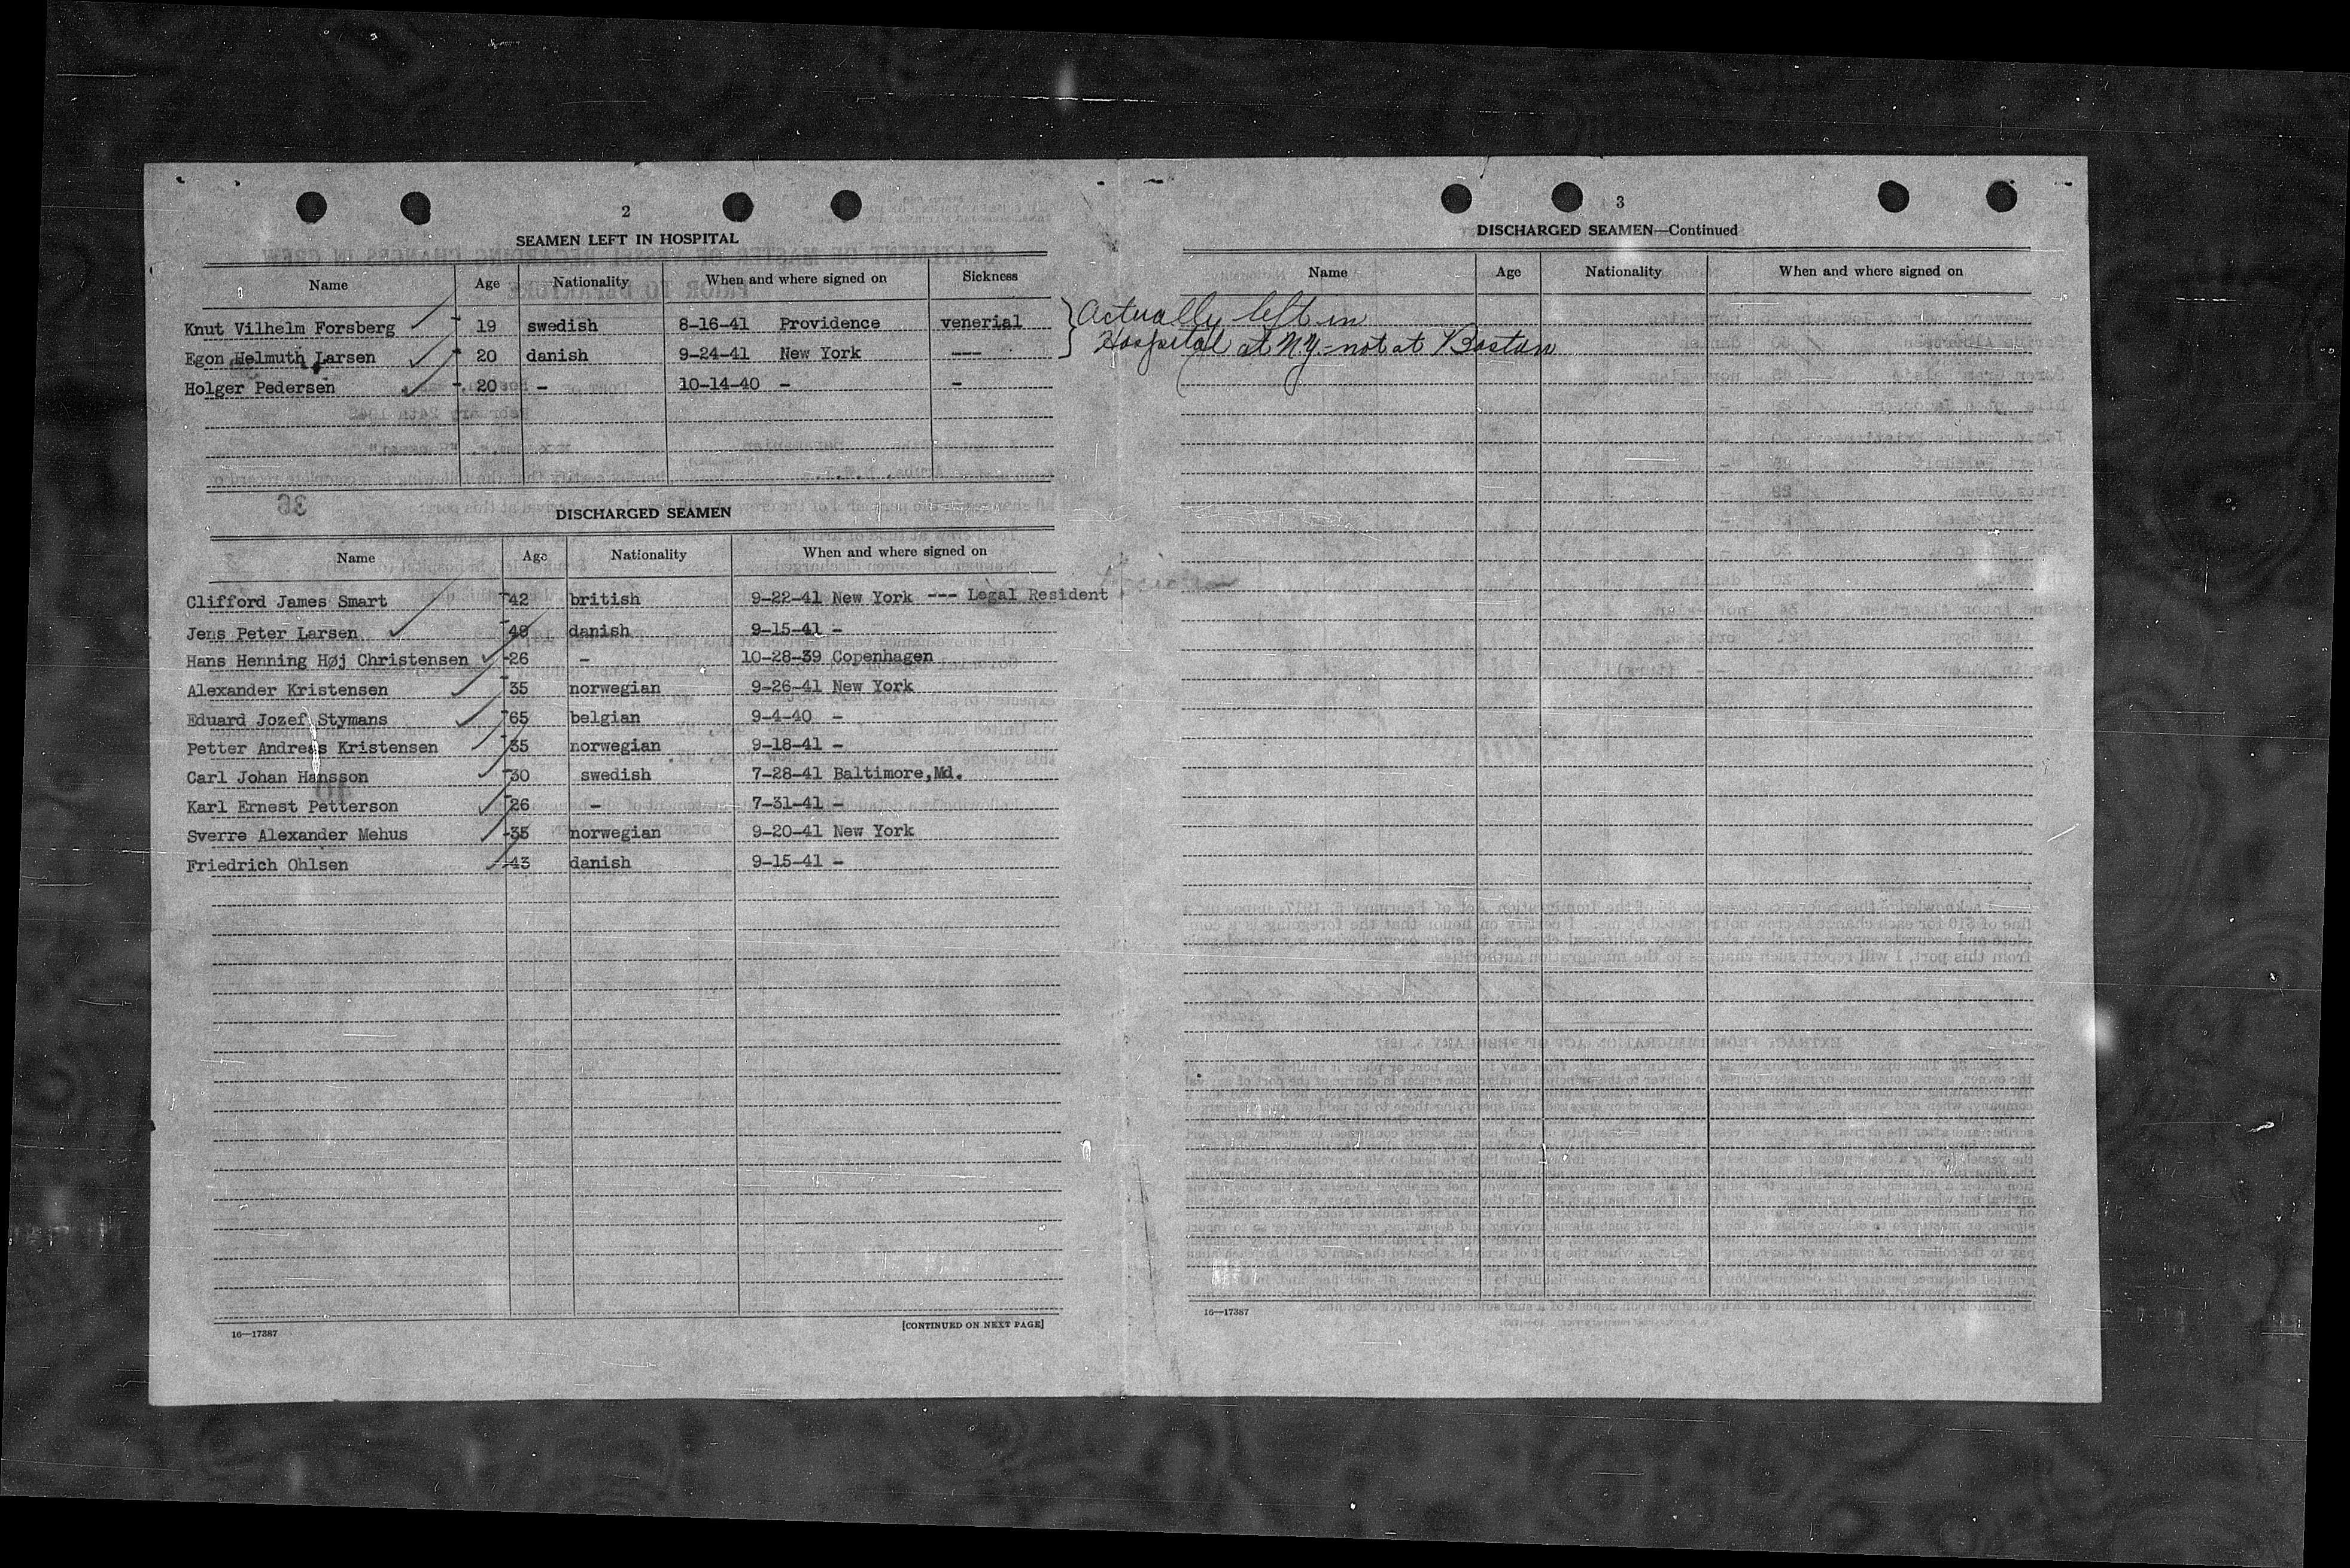 2
SEAMEN LEFT IN HOSPITAL
Name Age Nationality When and where signed on Sickness
Knut Vilhelm Forsberg 19 swedish 8-16-41 Providence venerial
Egon Helmuth Larsen 20 danish 9-24-41 New York ---
Holger Pedersen 20 - 10-14-40 - -
DISCHARGED SEAMEN
Name Age Nationality When and where signed on
Clifford James Smart 42 british 9-22-41 New York --- Legal Resident
Jens Peter Larsen 49 danish 9-15-41 -
Hans Henning Høj Christensen 26 - 10-28-39 Copenhagen
Alexander Kristensen 35 norwegian 9-26-41 New York
Eduard Jozef Stymans 65 belgian 9-4-40 -
Petter Andreas Kristensen 35 norwegian 9-18-41 -
Carl Johan Hansson 30 swedish 7-28-41 Baltimore,Md.
Karl Ernest Petterson 26 - 7-31-41 -
Sverre Alexander Mehus 35 norwegian 9-20-41 New York
Friedrich Ohlsen 43 danish 9-15-41 -
16—17387
[CONTINUED ON NEXT PAGE]
3
DISCHARGED SEAMEN—Continued
Name Age Nationality When and where signed on
Actually left in
Hospital at N.Y. - not at Boston
16—17387